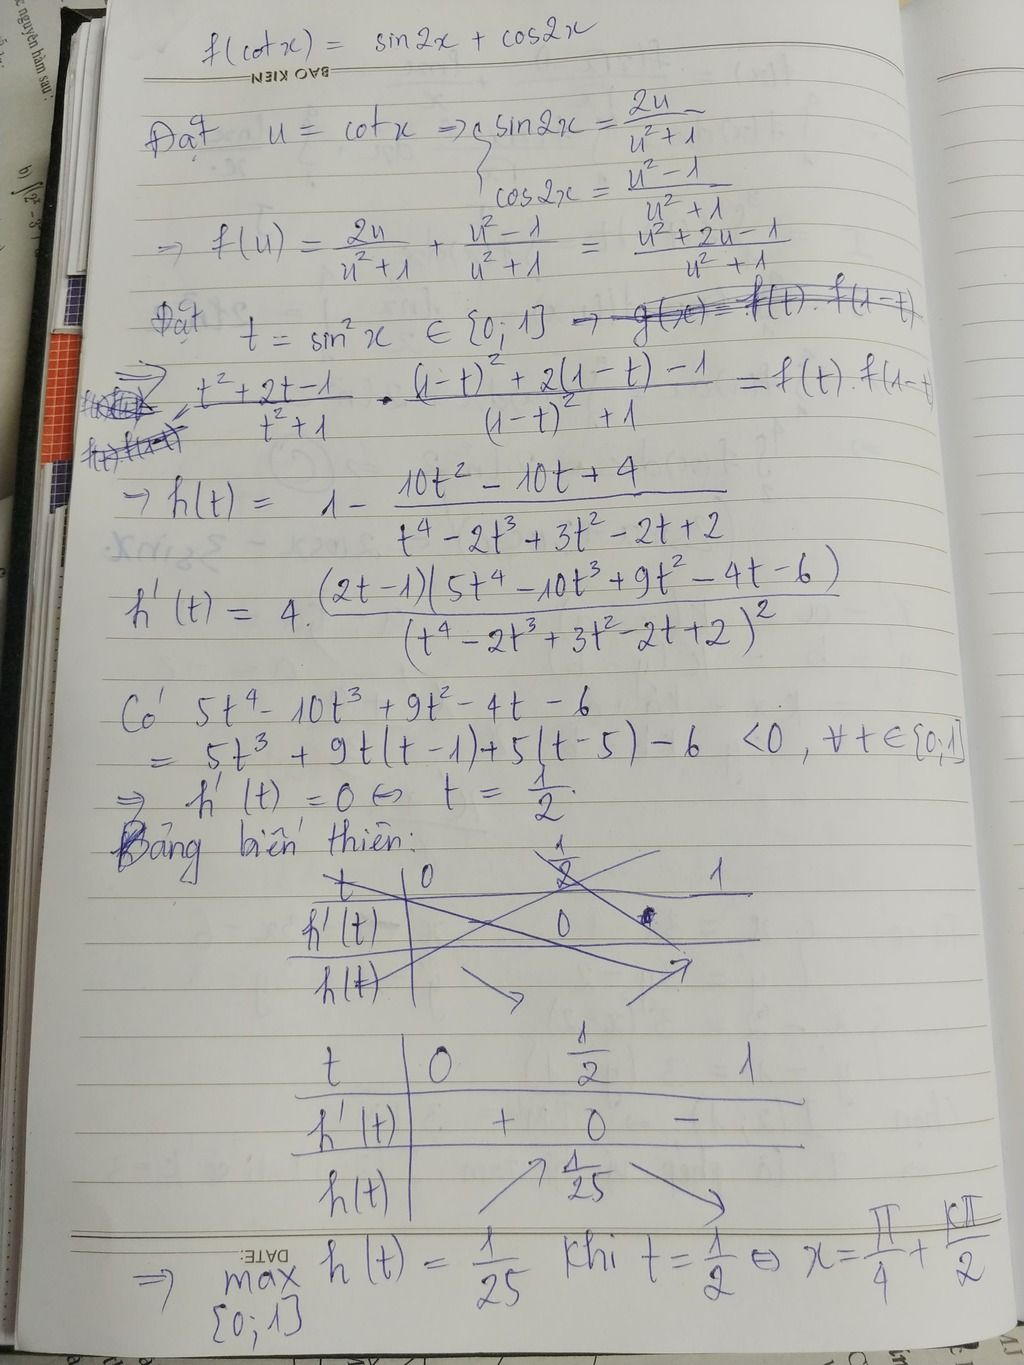 f(cotx) = sin2x + cos2x
BAO KIEN
Đặt u = cotx => { sin2x = 2u/(u²+1)
cos2x = (u²-1)/(u²+1)
=> f(u) = 2u/(u²+1) + (u²-1)/(u²+1) = (u²+2u-1)/(u²+1)
Đặt t = sin²x ∈ [0;1] → g(x) = f(t).f(1-t)
=> (t²+2t-1)/(t²+1) . ((1-t)²+2(1-t)-1)/((1-t)²+1) = f(t).f(1-t)
f(t).f(1-t)
→ h(t) = 1 - (10t²-10t+4)/(t⁴-2t³+3t²-2t+2)
h'(t) = 4. (2t-1)(5t⁴-10t³+9t²-4t-6)/(t⁴-2t³+3t²-2t+2)²
Có 5t⁴-10t³+9t²-4t-6
= 5t³ + 9t(t-1)+5(t-5)-6 <0, ∀t∈[0;1]
=> h'(t) = 0 ⇔ t = 1/2.
Bảng biến thiên:
t 0 1/2 1
h'(t) - 0
h(t) ↘ ↗
t 0 1/2 1
h'(t) + 0 -
h(t) ↗ 1/25 ↘
DATE:
=> max h(t) = 1/25 khi t = 1/2 ⇔ x = π/4 + kπ/2
[0;1]
nguyên hàm sau:
b)